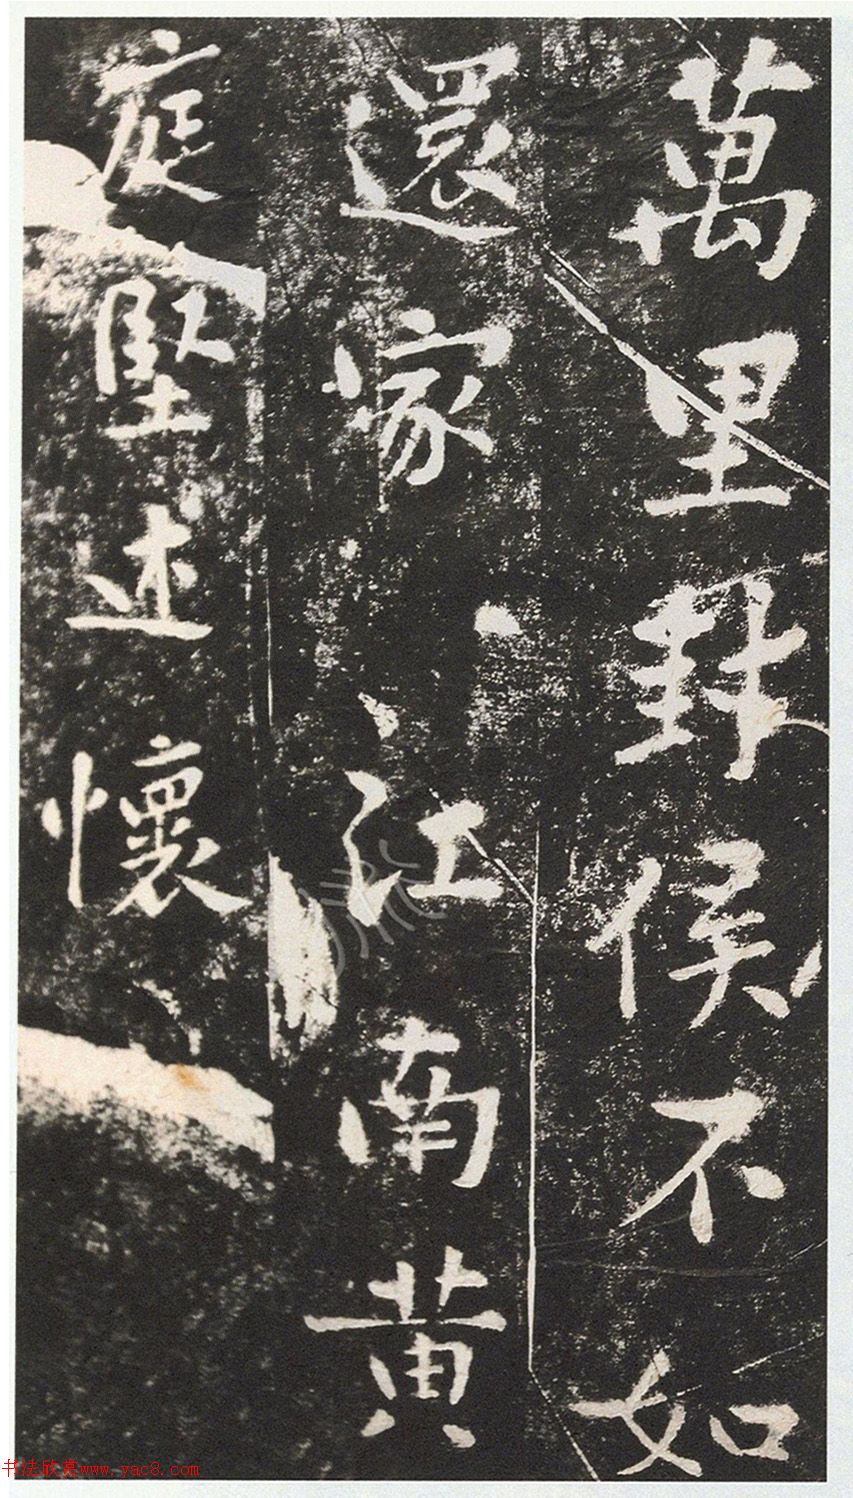 萬里封侯不如
還家江南黄
庭堅述懷
书法欣赏www.yac8.com